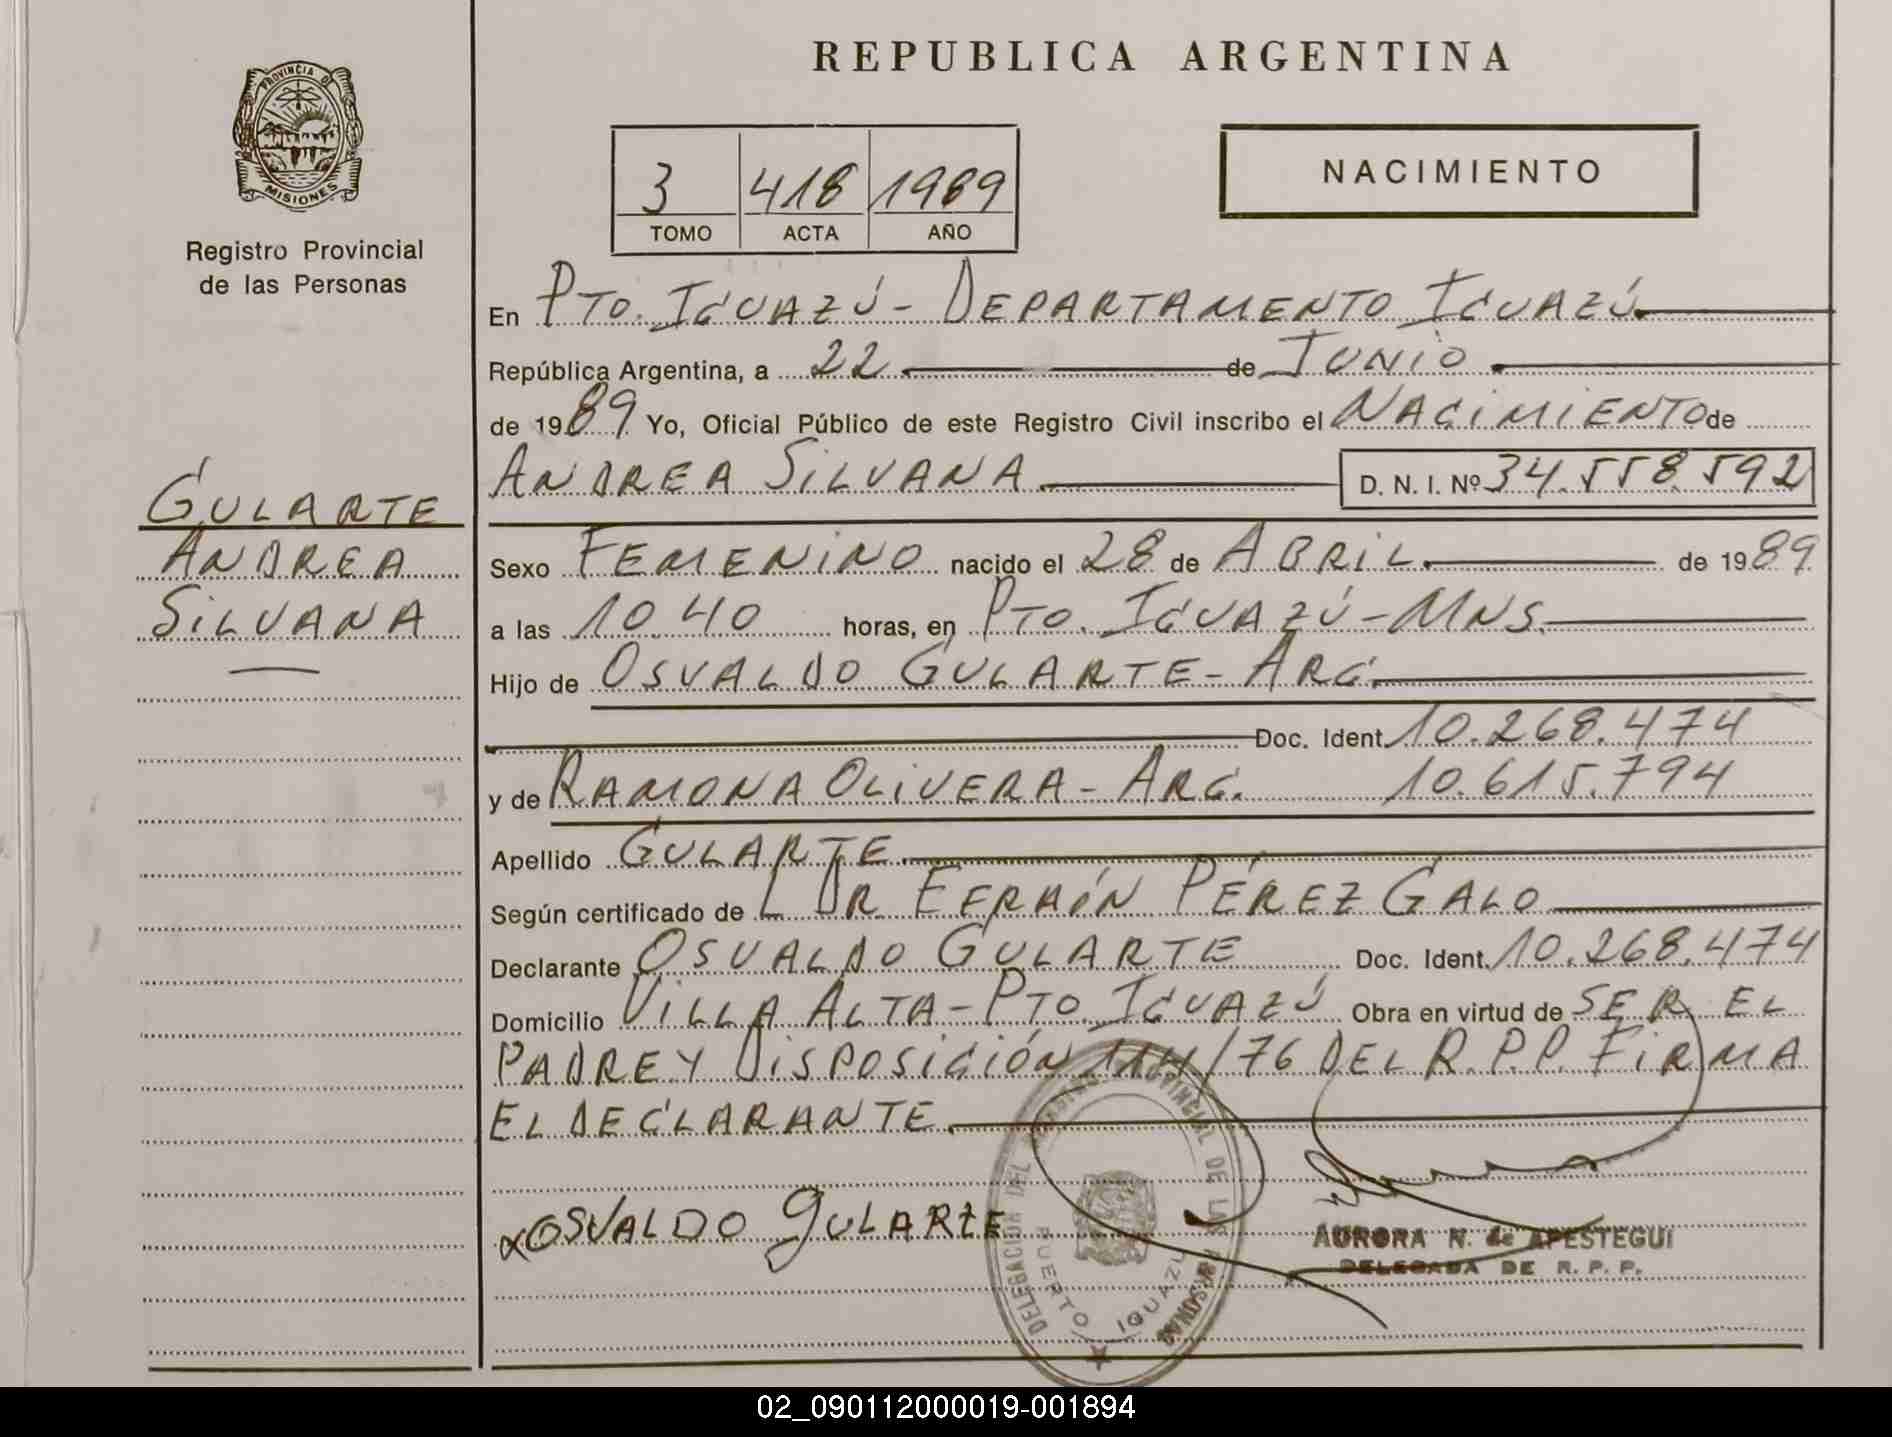 REPUBLICA ARGENTINA
PROVINCIA DE
MISIONES
Registro Provincial
de las Personas
3 418 1989
TOMO ACTA AÑO
NACIMIENTO
En PTO. IGUAZÚ - DEPARTAMENTO IGUAZÚ
República Argentina, a 22 de JUNIO
de 1989 Yo, Oficial Público de este Registro Civil inscribo el NACIMIENTO de
ANDREA SILVANA D. N. I. Nº 34.558.592
GULARTE
ANDREA
SILVANA
Sexo FEMENINO nacido el 28 de ABRIL de 1989
a las 10.40 horas, en PTO. IGUAZÚ - MNS.
Hijo de OSVALDO GULARTE - ARG.
Doc. Ident. 10.268.474
y de RAMONA OLIVERA - ARG. 10.615.794
Apellido GULARTE
Según certificado de L DR EFRAÍN PÉREZ GALO
Declarante OSVALDO GULARTE Doc. Ident. 10.268.474
Domicilio VILLA ALTA - PTO. IGUAZÚ Obra en virtud de SER EL
PADRE Y DISPOSICIÓN 114/76 DEL R.P.P. FIRMA
EL DECLARANTE.
OSVALDO GULARTE
DELEGACION DEL REGISTRO PROVINCIAL DE LAS PERSONAS
PUERTO IGUAZU
AURORA N. de APESTEGUI
DELEGADA DE R. P. P.
02_090112000019-001894